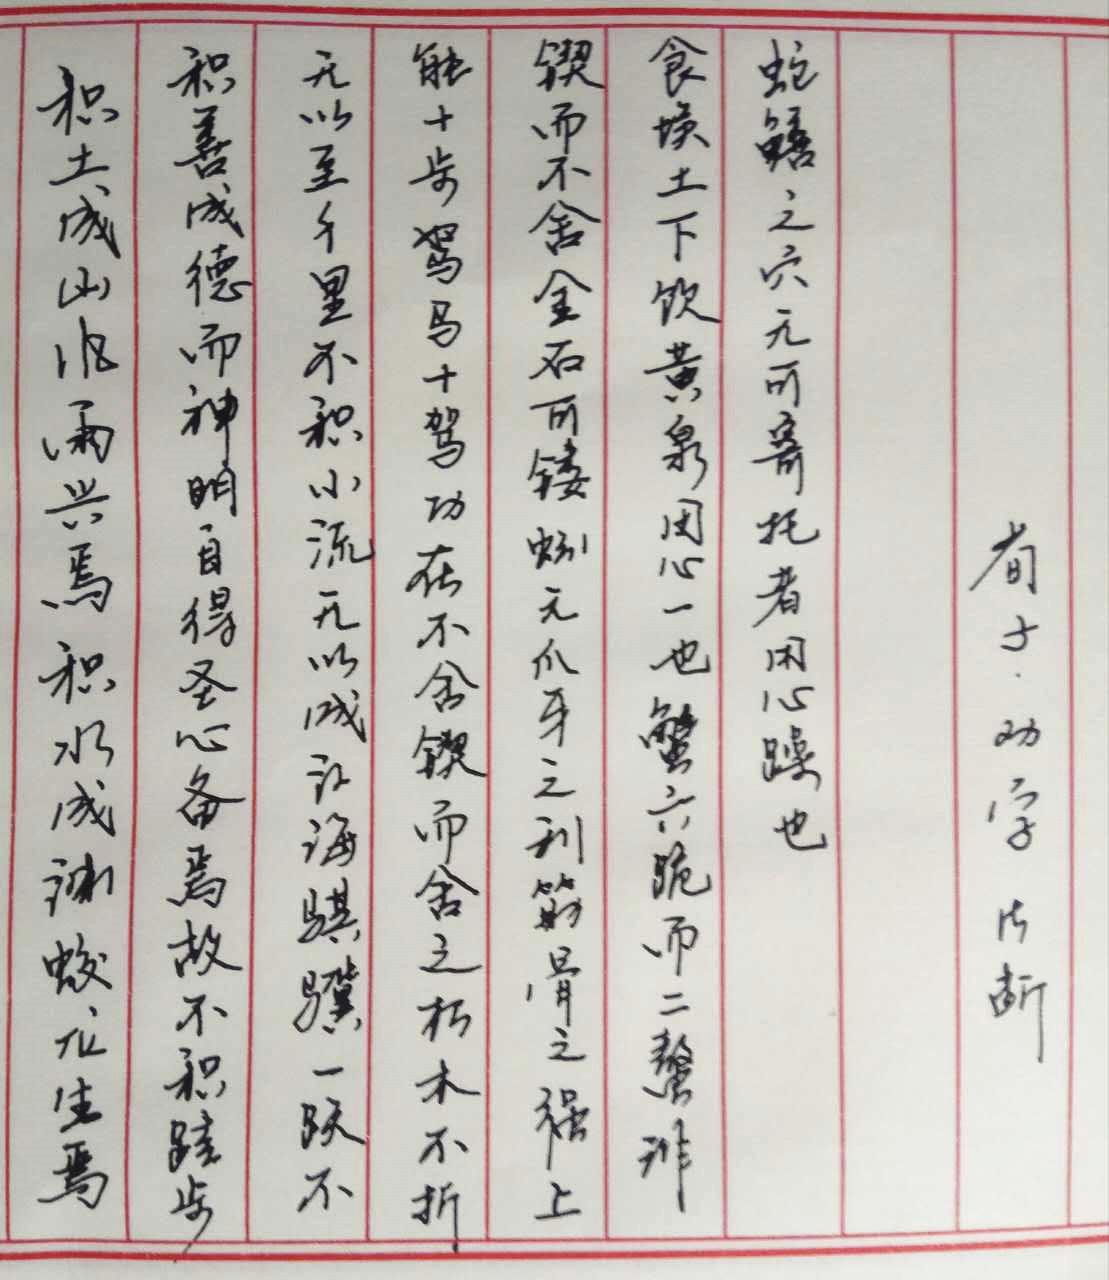 积土成山风雨兴焉积水成渊蛟龙生焉
积善成德而神明自得圣心备焉故不积跬步
无以至千里不积小流无以成江海骐骥一跃不
能十步驽马十驾功在不舍锲而舍之朽木不折
锲而不舍金石可镂蚓无爪牙之利筋骨之强上
食埃土下饮黄泉用心一也蟹六跪而二螯非
蛇鳝之穴无可寄托者用心躁也
荀子·劝学 片断